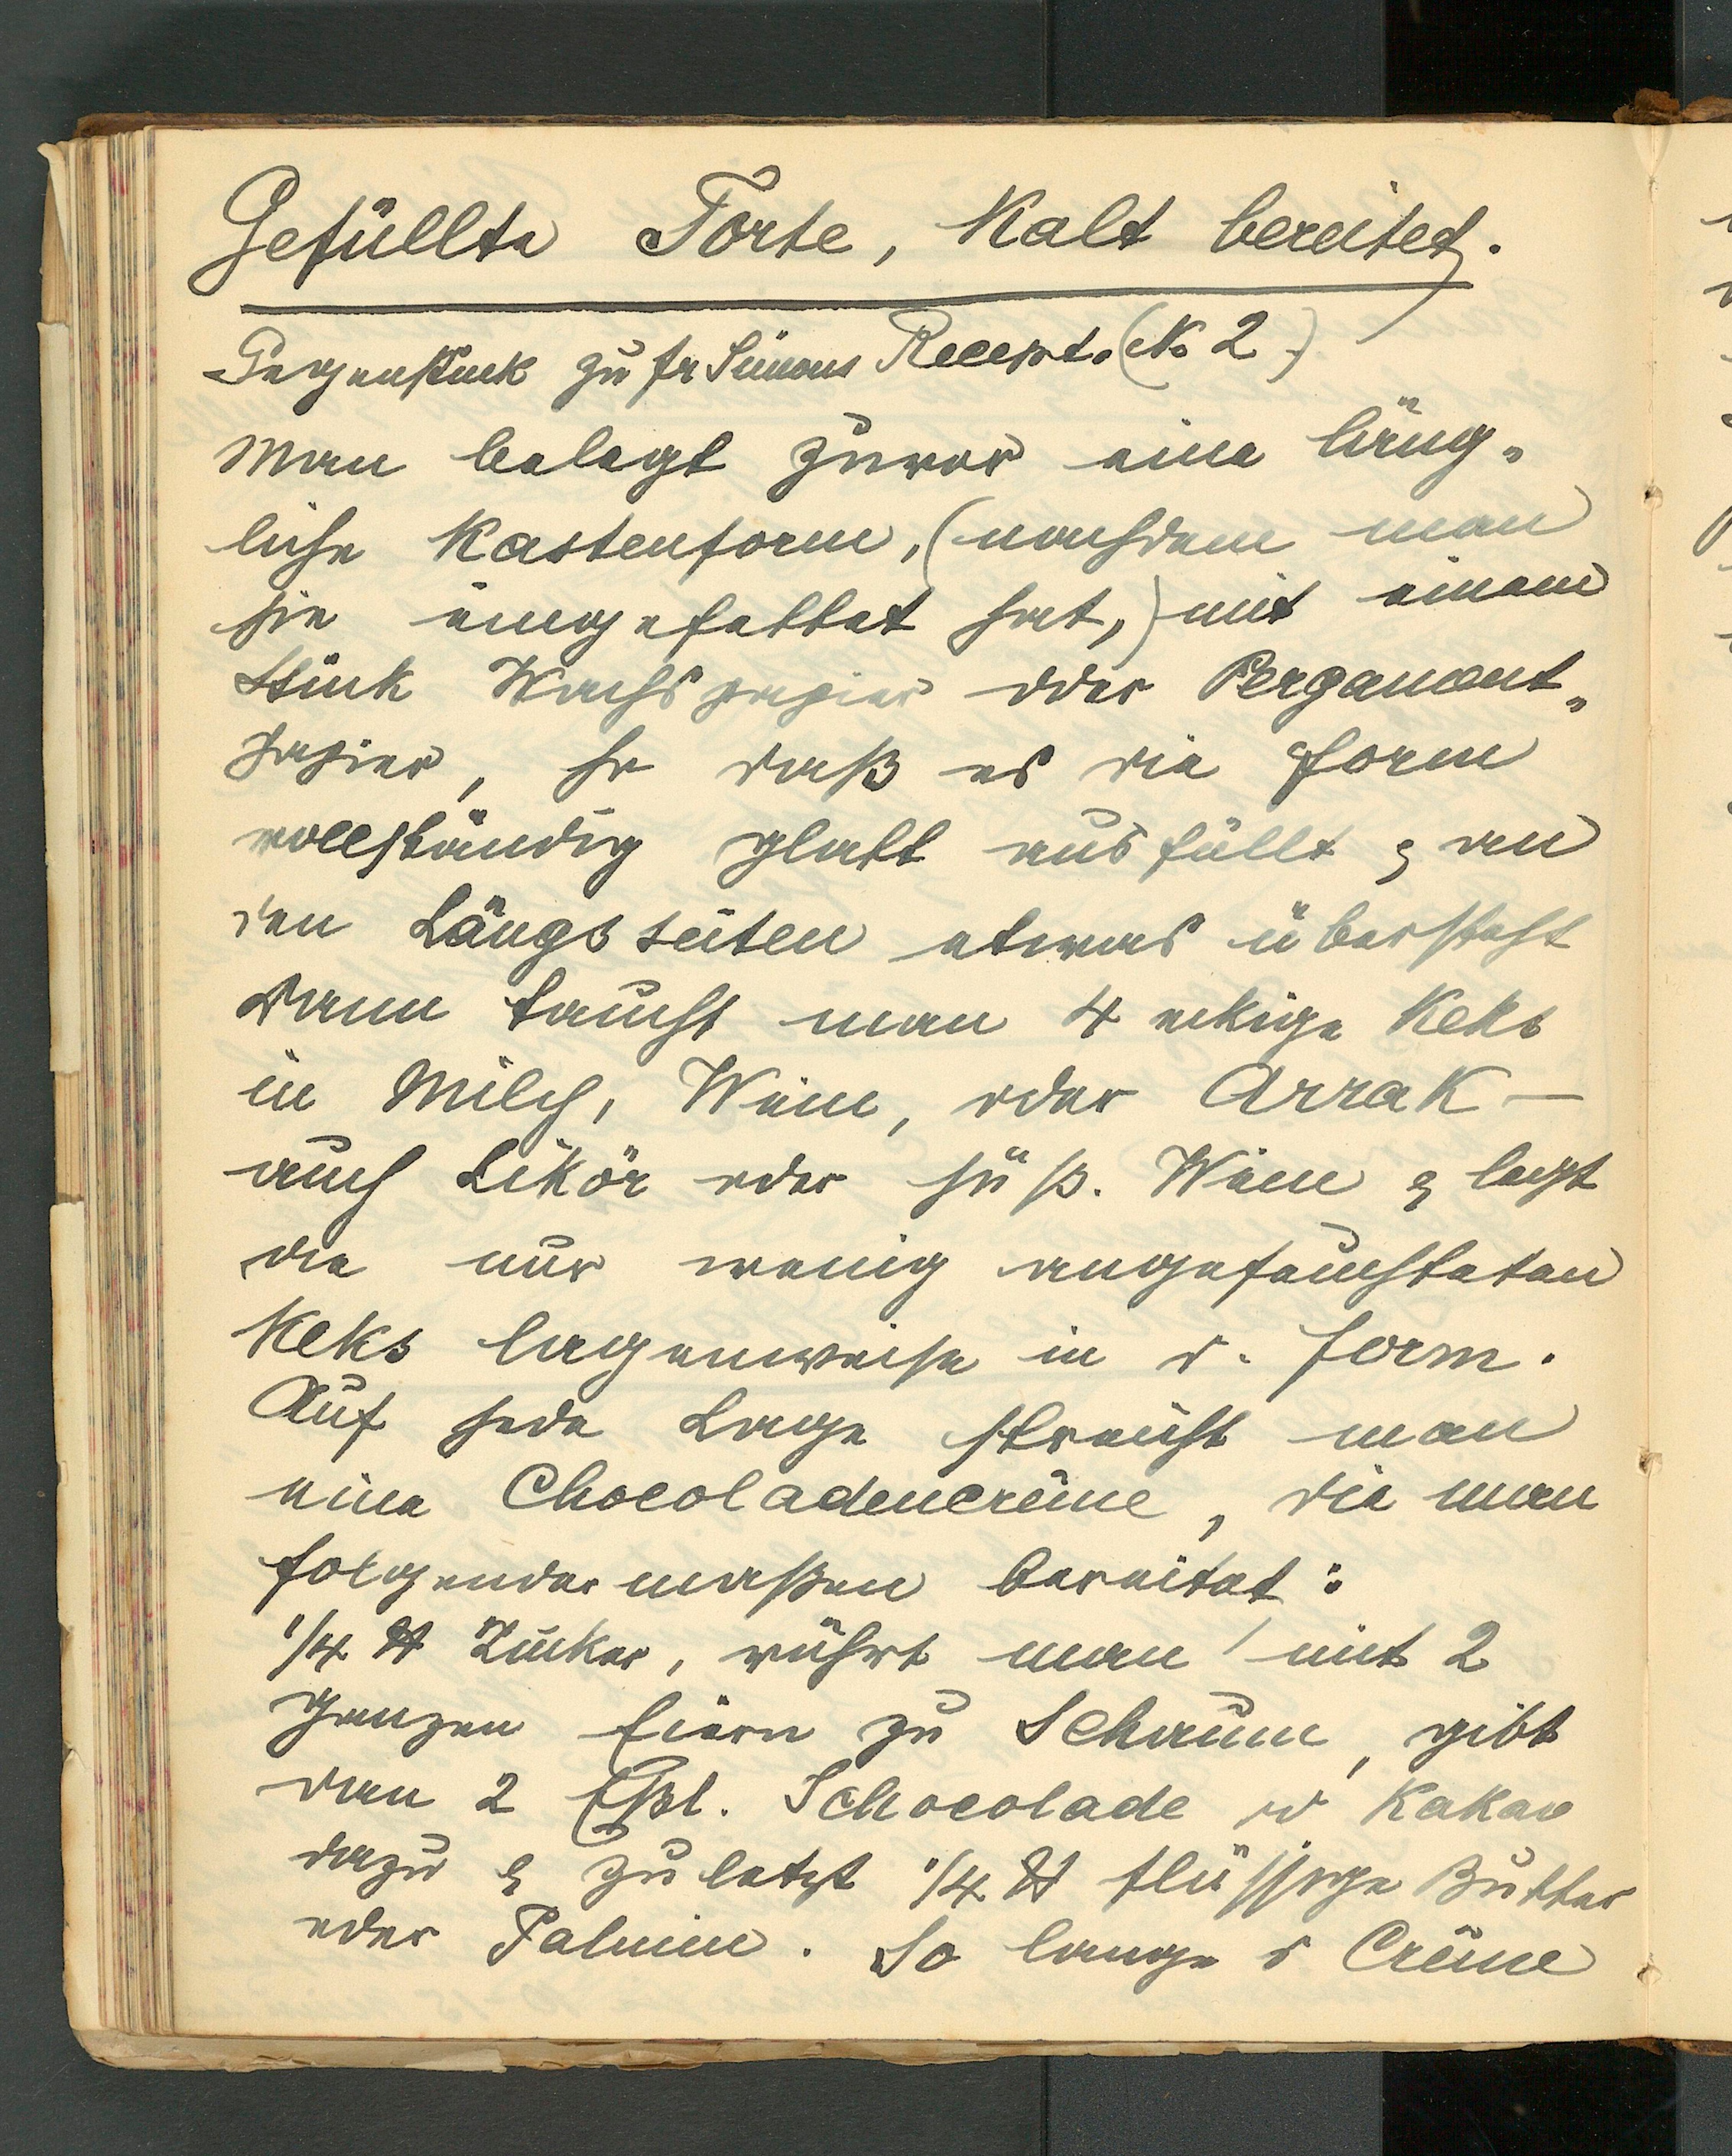 Gefüllte Torte, Kalt bereitet.
Gegenstück zu Fr Simons Recept. (No 2)
Man belegt zuvor eine läng-
liche Kastenform, (nachdem man
sie eingefettet hat,) mit einem
Stück Wachspapier oder Pergament-
papier, so daß es die Form
vollständig glatt ausfüllt & an
den Längsseiten etwas übersteht
Dann taucht man 4 eckige Keks
in Milch, Wein, oder Arrak –
auch Likör oder süß. Wein & legt
die nur wenig angefeuchteten
Keks lagenweise in d. Form.
Auf jede Lage streicht man
eine Chocoladencrême, die man
folgendermaßen bereitet:
1/4 ℔ Zucker, rührt man mit 2
ganzen Eiern zu Schaum, gibt
dan 2 Eßl. Schocolade od Kakao
dazu & zuletzt 1/4 ℔ flüssige Butter
oder Palmin. So lange d Crême